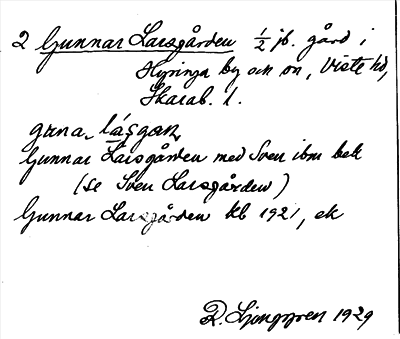 2 Gunnar Larsgården 1/2 jb. gård i
Hyringa by och sn, Viste hd,
Skarab. l.
guna, lásgan,
Gunnar Larsgården med Sven ibm bek
(se Sven Larsgården)
Gunnar Larsgården kb 1921, ek
R. Ljunggren 1929